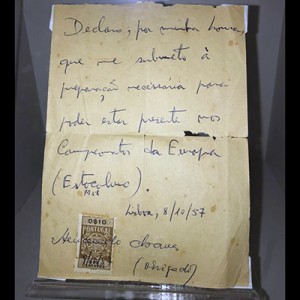 Declaro, por minha honra,
que me submeto à
preparação necessária para
poder estar presente nos
Campeonatos da Europa
(Estocolmo).
Lisboa, 8/10/57
0$10
PORTUGAL
(Obrigado)